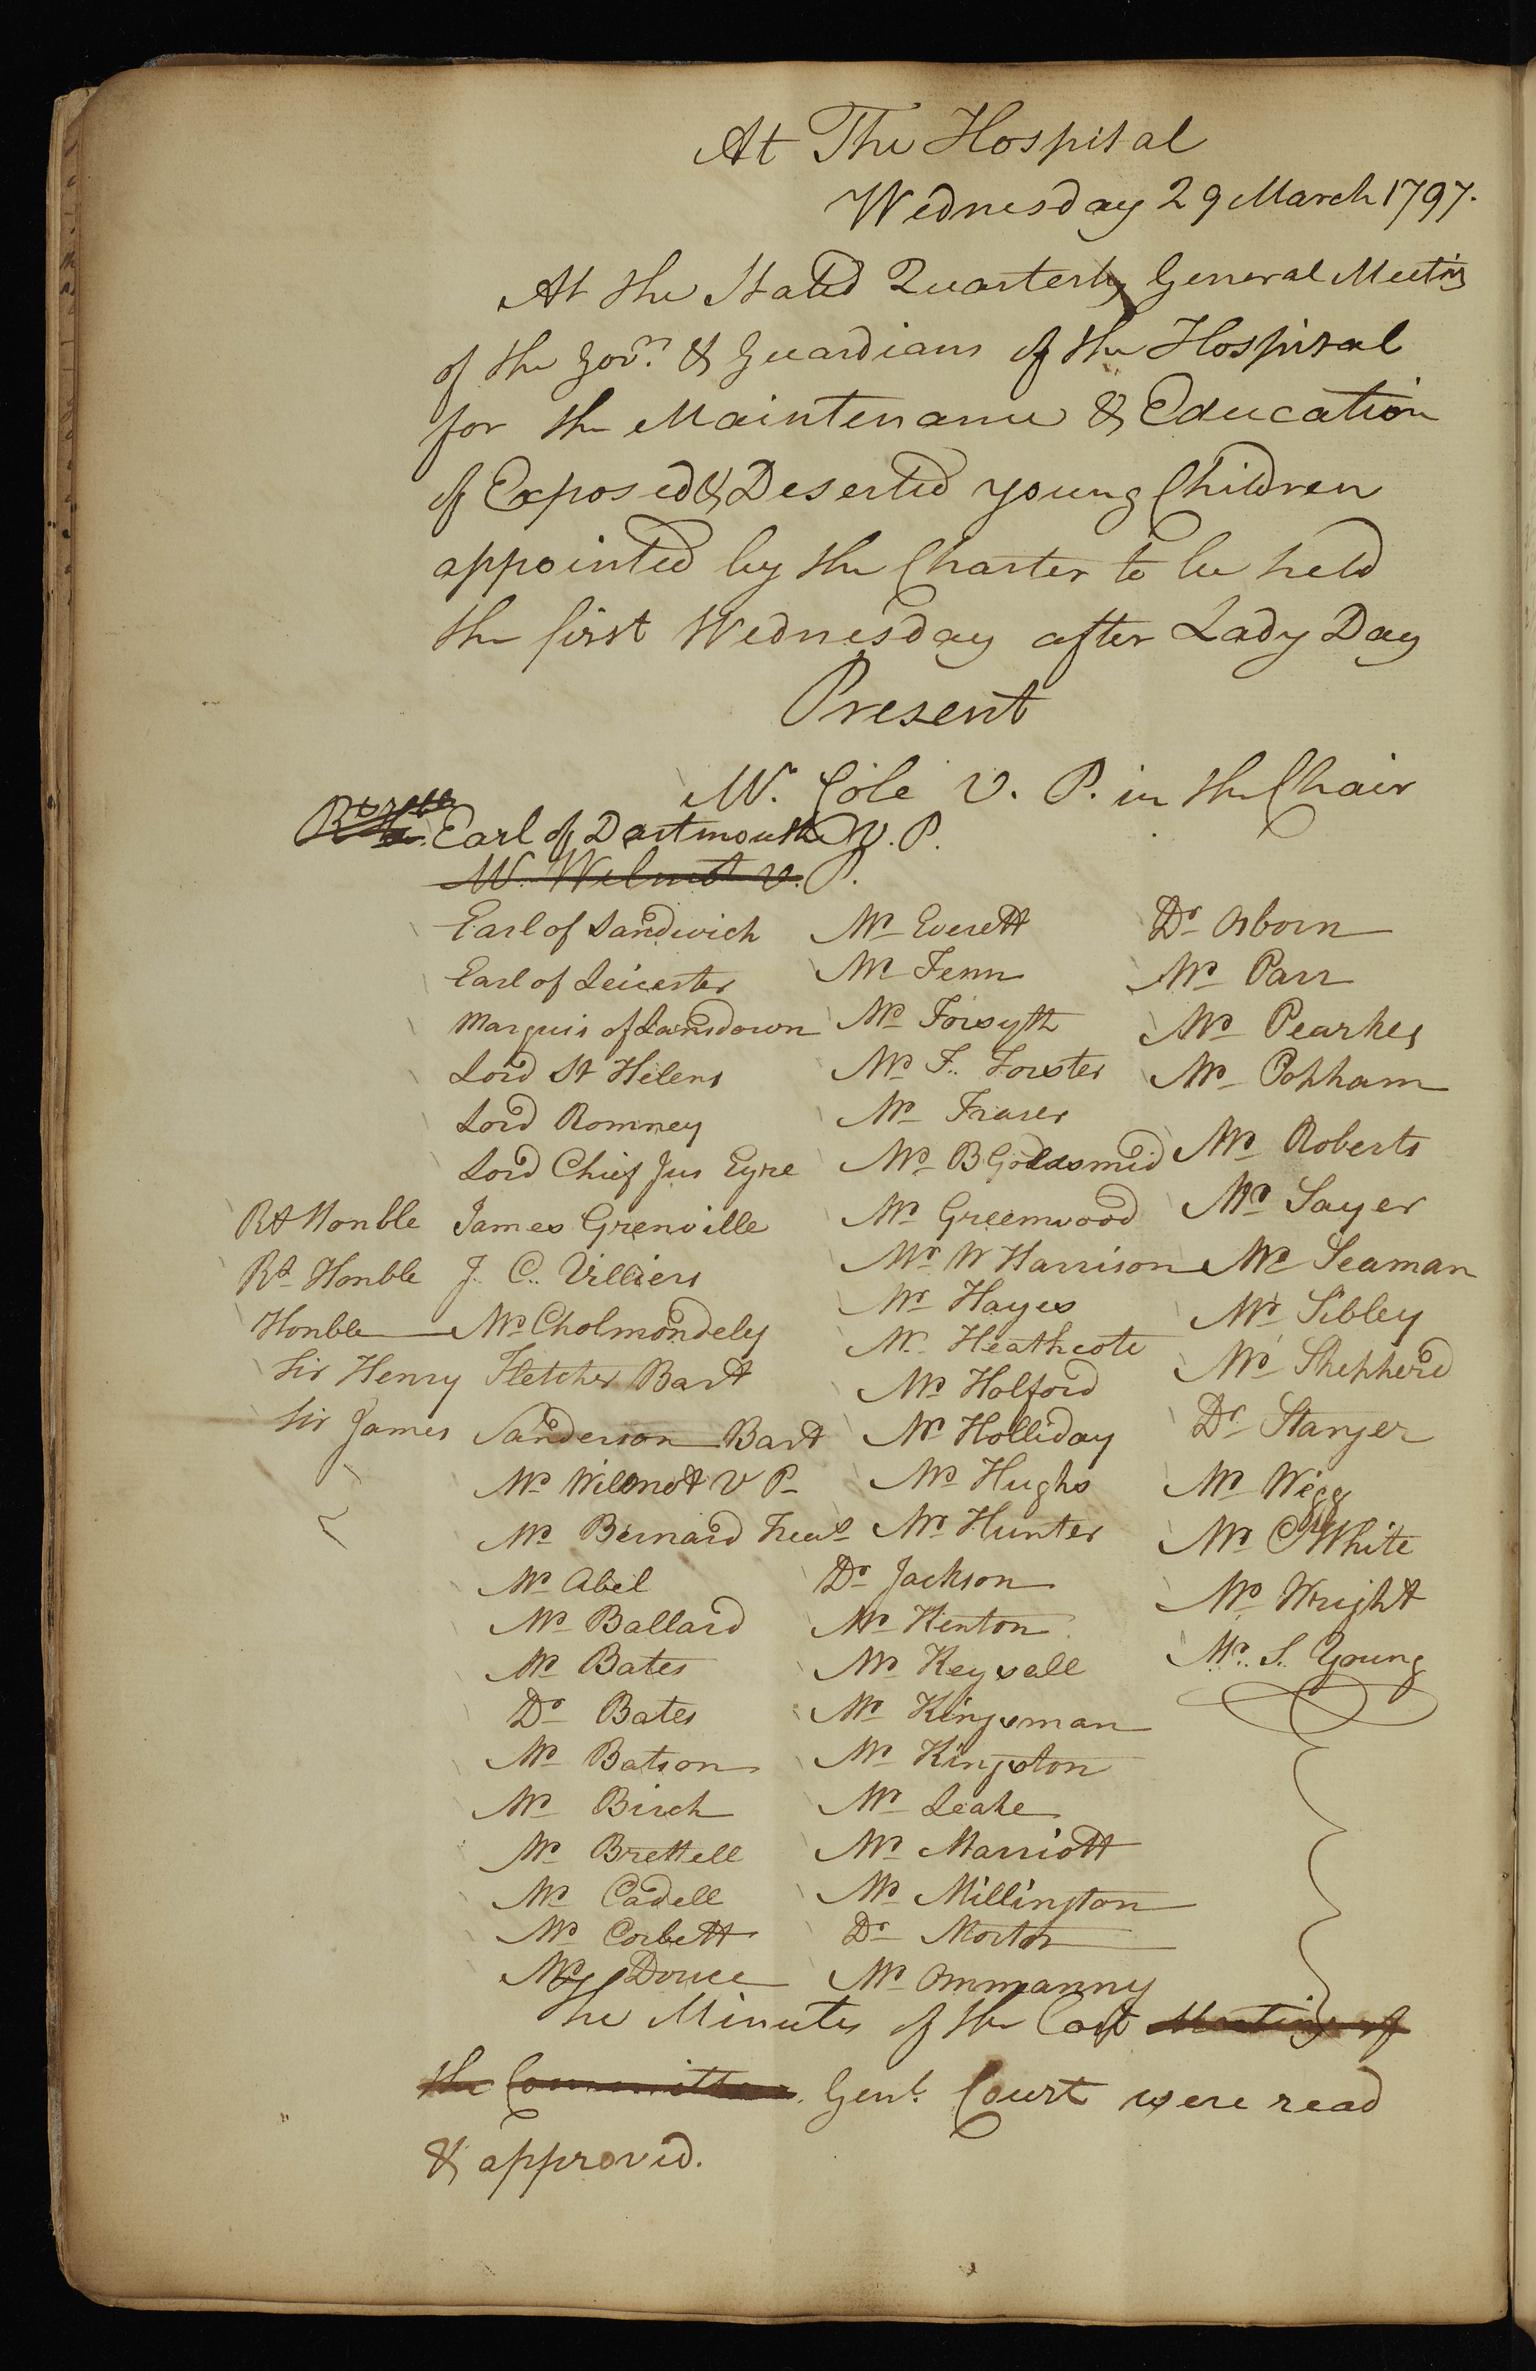 At The Hospital
Wednesday 29 March 1797.
At the Stated Quarterly General Meeting
of the Govrs & Guardians of the Hospital
for the Maintenance & Education
of Exposed & Deserted young Children
appointed by the Charter to be held
the first Wednesday after Lady Day
Present
Mr. Cole V. P. in the Chair
Earl of Dartmouth V. P.
Mr Wilmot V. P.
Earl of Sandwich
Earl of Leicester
Marquis of Lansdown
Lord St Helens
Lord Romney
Lord Chief Jus Eyre
Rt Honble James Grenville
Rt Honble J. C. Villiers
Honble Mr Cholmondely
Sir Henry Fletcher Bart
Sir James Sanderson Bart
Mr Wilmot V P
Mr Bernard Treas
Mr Abel
Mr Ballard
Mr Bates
Dr Bates
Mr Batson
Mr Birch
Mr Brettell
Mr Cadell
Mr Corbett
Mr Douce
Mr Everett
Mr Fenn
Mr Forsyth
Mr F. Forster
Mr Fraser
Mr B Goldsmid
Mr Greenwood
Mr W Harrison
Mr Hayes
Mr Heathcote
Mr Holford
Mr Holliday
Mr Hughs
Mr Hunter
Dr Jackson
Mr Kenton
Mr Keysall
Mr Kingsman
Mr Kingston
Mr Leake
Mr Marriott
Mr Millington
Dr Morton
Mr Ommanny
Dr Osborn
Mr Parr
Mr Pearkes
Mr Popham
Mr Roberts
Mr Sayer
Mr Seaman
Mr Sibley
Mr Shepherd
Dr Stanger
Mr Wegg
Mr White
Mr Wright
Mr. S. Young
The Minutes of the last Meeting of
the Committee Genl. Court were read
& approved.